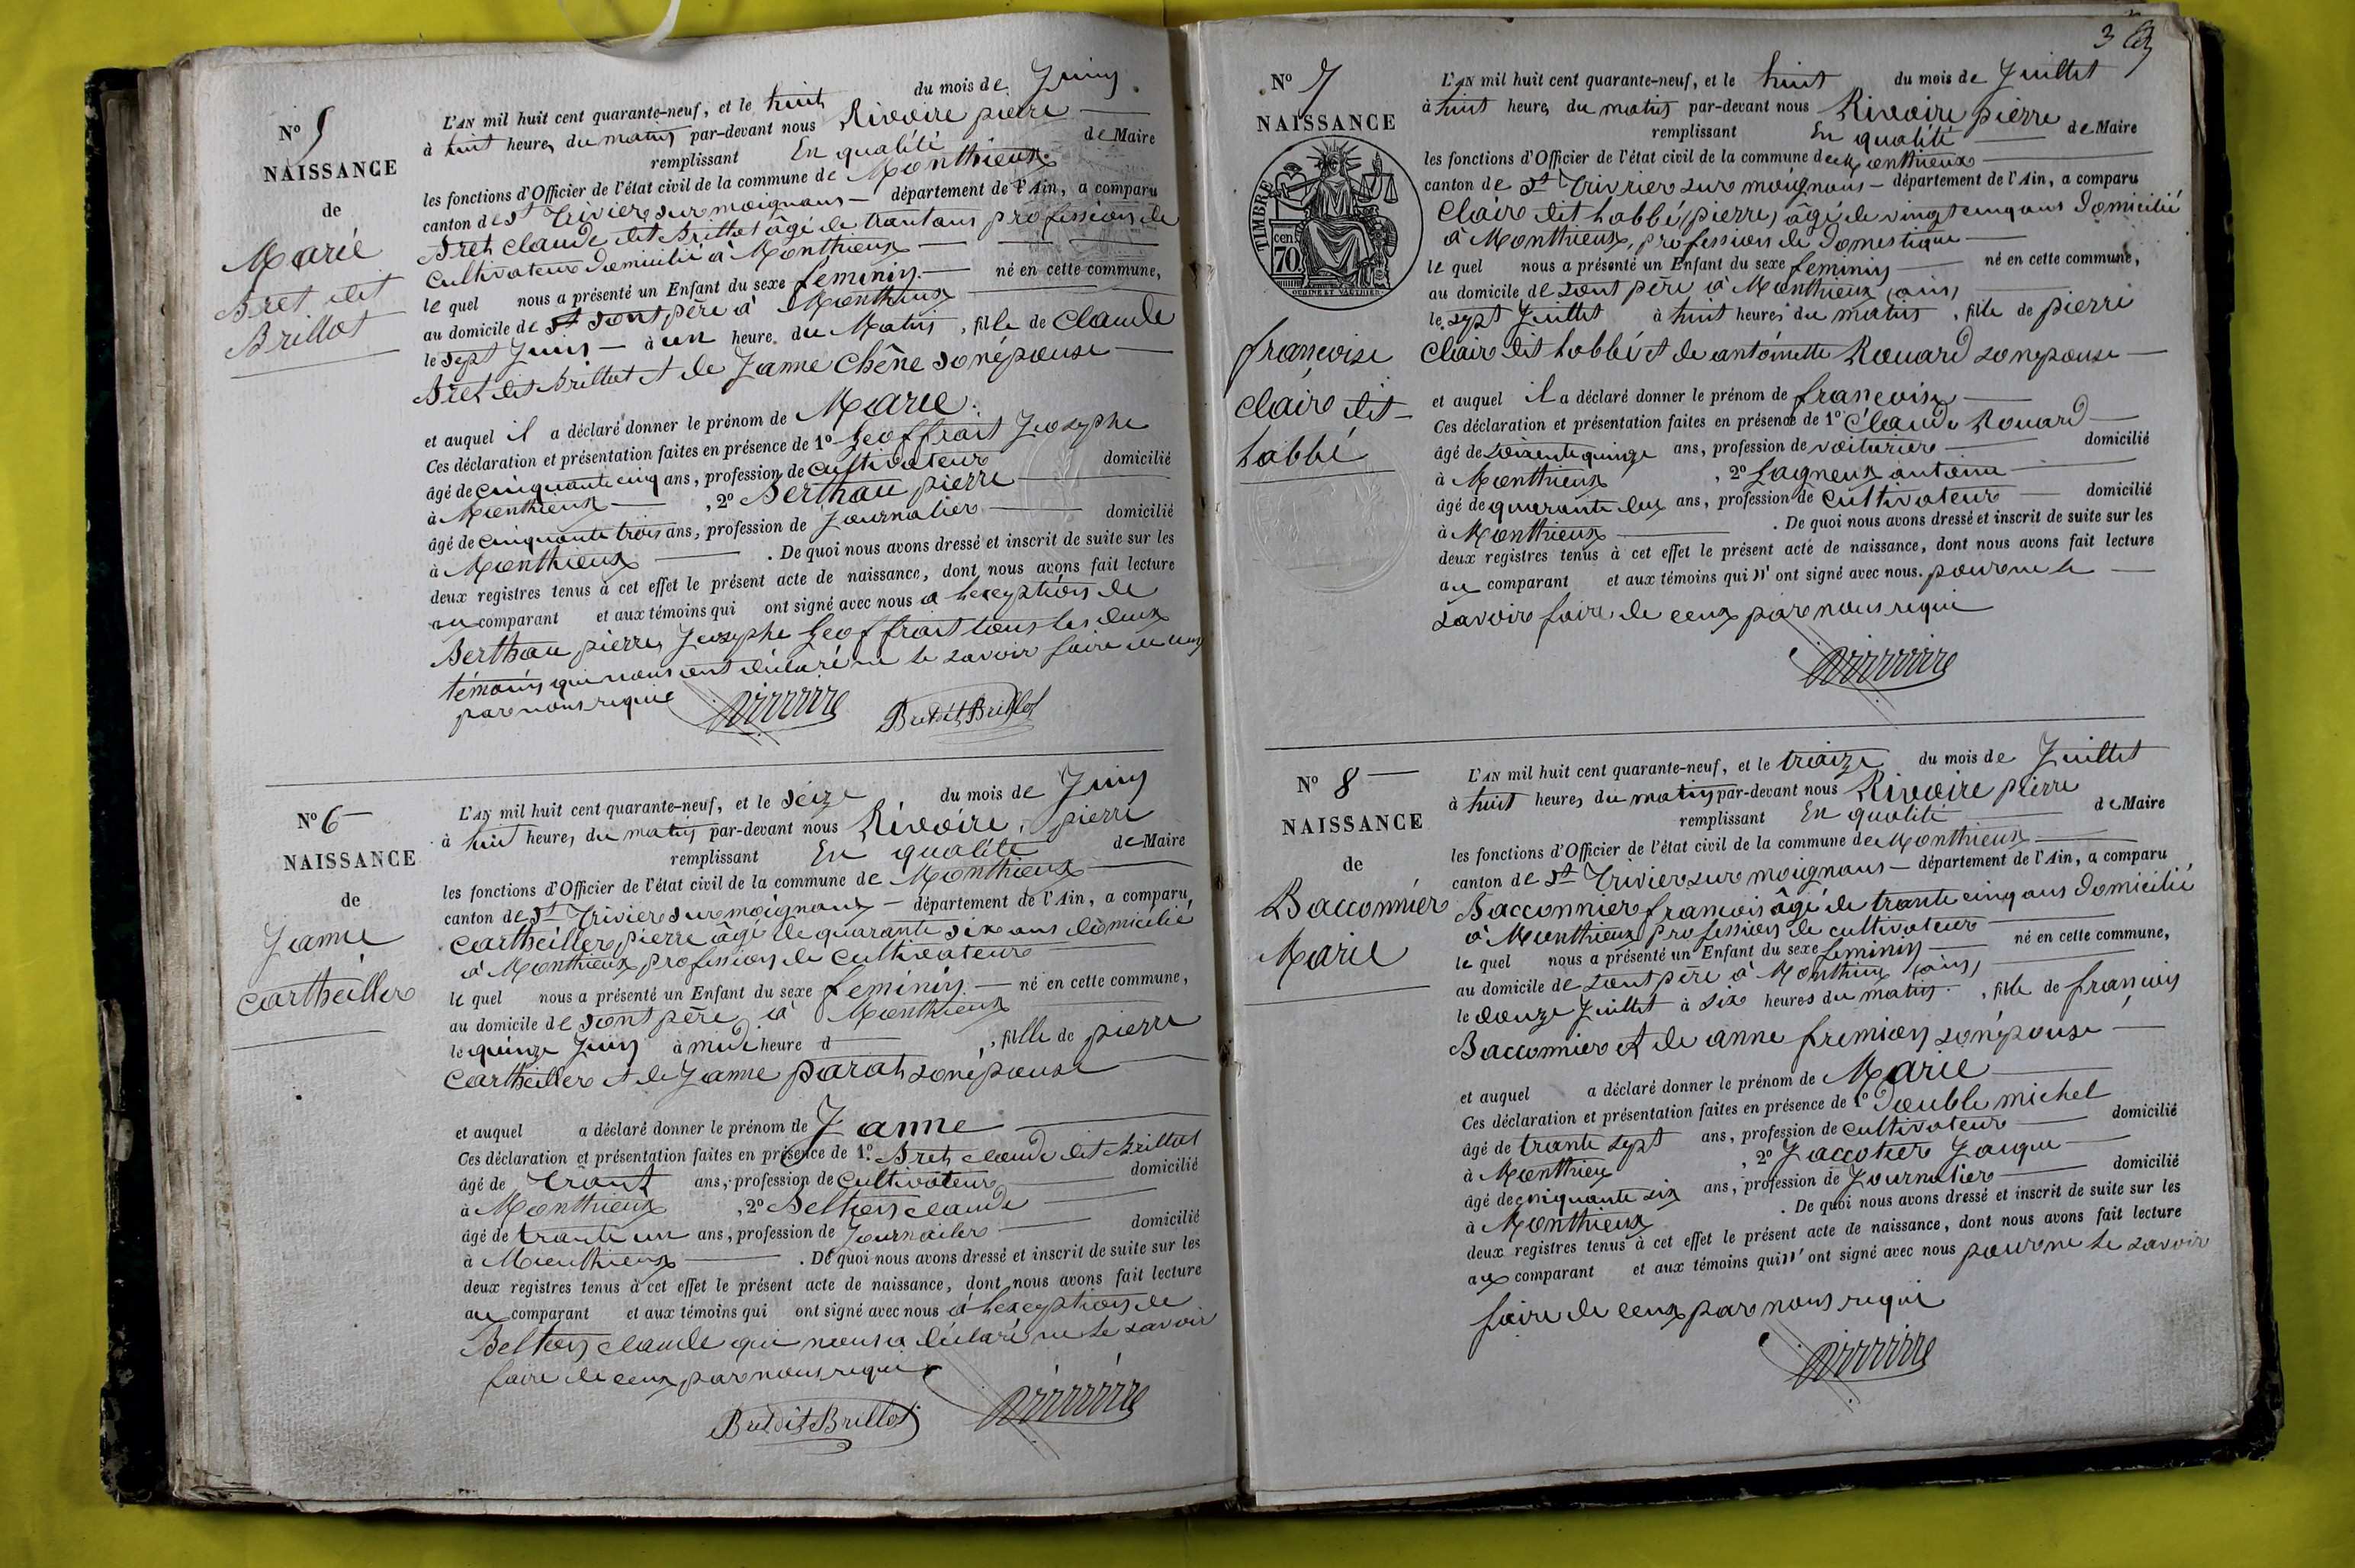 N° 5
NAISSANCE
de
Marie
Bret dit
Brillot
L'AN mil huit cent quarante-neuf, et le huit du mois de Juin
à huit heures du matin par-devant nous Rivoire pierre
remplissant En qualité de Maire
les fonctions d'Officier de l'état civil de la commune de Monthieux
canton de St Trivier sur moignans département de l'Ain, a comparu
Bret claude dit Brillot âgé de trant ans profession de
cultivateur domicilié à Monthieux
le quel nous a présenté un Enfant du sexe feminin né en cette commune,
au domicile de sont père à Monthieux
le sept Juin à un heure du Matin, fille de Claude
Bret dit Brillot et de Janne Chêne son épouse
et auquel il a déclaré donner le prénom de Marie.
Ces déclaration et présentation faites en présence de 1° Geoffrait Josephe
âgé de cinquante cinq ans, profession de cultivateur domicilié
à Monthieux, 2° Berthau pierre
âgé de cinquante trois ans, profession de Journalier domicilié
à Monthieux. De quoi nous avons dressé et inscrit de suite sur les
deux registres tenus à cet effet le présent acte de naissance, dont nous avons fait lecture
au comparant et aux témoins qui ont signé avec nous a lexception de
Berthau pierre, Josephe Geoffrait tous les deux
témoins qui nous ont déclaré ne le savoir faire de ceux
par nous requie
Bret dit Brillot
N° 6
NAISSANCE
de
Janne
Cartheiller
L'AN mil huit cent quarante-neuf, et le seize du mois de Juin
à huit heures du matin par-devant nous Rivoire, pierre
remplissant En qualité de Maire
les fonctions d'Officier de l'état civil de la commune de Monthieux
canton de St Trivier sur moignans département de l'Ain, a comparu
Cartheiller pierre âgé de quarante six ans domicilié
à Monthieux profession de cultivateur
le quel nous a présenté un Enfant du sexe feminin né en cette commune,
au domicile de sont père à Monthieux
le quinze Juin à midi heure d, fille de pierre
Cartheiller et de Janne parat son épouse
et auquel a déclaré donner le prénom de Janne
Ces déclaration et présentation faites en présence de 1° Bret claude dit Brillot
âgé de trant ans, profession de cultivateur domicilié
à Monthieux, 2° Belton claude
âgé de trante un ans, profession de Journailer domicilié
à Monthieux. De quoi nous avons dressé et inscrit de suite sur les
deux registres tenus à cet effet le présent acte de naissance, dont nous avons fait lecture
au comparant et aux témoins qui ont signé avec nous à lexception de
Belton claude qui nous a déclaré ne le savoir
faire de ceux par nous requi
Bret dit Brillot
3
N° 7
NAISSANCE
TIMBRE
70 cen
OUDINE ET VAUTHIER
françoise
Claire dit
labbé
L'AN mil huit cent quarante-neuf, et le huit du mois de Juillet
à huit heures du matin par-devant nous Rivoire pierre
remplissant En qualité de Maire
les fonctions d'Officier de l'état civil de la commune de Monthieux
canton de St Trivrier sur moignans département de l'Ain, a comparu
Claire dit labbé (pierre) âgé de vingt cinq ans domicilié
à Monthieux, profession de domestique
le quel nous a présenté un Enfant du sexe feminin né en cette commune,
au domicile de sont père à Monthieux (ain)
le sept Juillet à huit heures du matin, fille de pierre
Claire dit labbé et de antoinette Rouard son epouse
et auquel il a déclaré donner le prénom de françoise
Ces déclaration et présentation faites en présence de 1° Claude Rouard
âgé de soixente quinze ans, profession de voiturier domicilié
à Monthieux, 2° Lagneux antoine
âgé de quarante deux ans, profession de cultivateur domicilié
à Monthieux. De quoi nous avons dressé et inscrit de suite sur les
deux registres tenus à cet effet le présent acte de naissance, dont nous avons fait lecture
au comparant et aux témoins qui n'ont signé avec nous. pour ne le
savoir faire de ceux par nous requi
N° 8
NAISSANCE
de
Bacconnier
Marie
L'AN mil huit cent quarante-neuf, et le traize du mois de Juillet
à huit heures du matin par-devant nous Rivoire pierre
remplissant En qualité de Maire
les fonctions d'Officier de l'état civil de la commune de Monthieux
canton de St Trivier sur moignans département de l'Ain, a comparu
Bacconnier francois âgé de trante cinq ans domicilié
à Monthieux profession de cultivateur
le quel nous a présenté un Enfant du sexe feminin né en cette commune,
au domicile de sont père à Monthieux (ain)
le douze Juillet à six heures du matin, fille de françois
Bacconnier et de anne fremion son épouse
et auquel a déclaré donner le prénom de Marie
Ces déclaration et présentation faites en présence de 1° Double michel
âgé de trante sept ans, profession de cultivateur domicilié
à Monthieux, 2° Jaccotier Jaique
âgé de cinquante six ans, profession de Journalier domicilié
à Monthieux. De quoi nous avons dressé et inscrit de suite sur les
deux registres tenus à cet effet le présent acte de naissance, dont nous avons fait lecture
au comparant et aux témoins qui n'ont signé avec nous pour ne le savoir
faire de ceux par nous requi